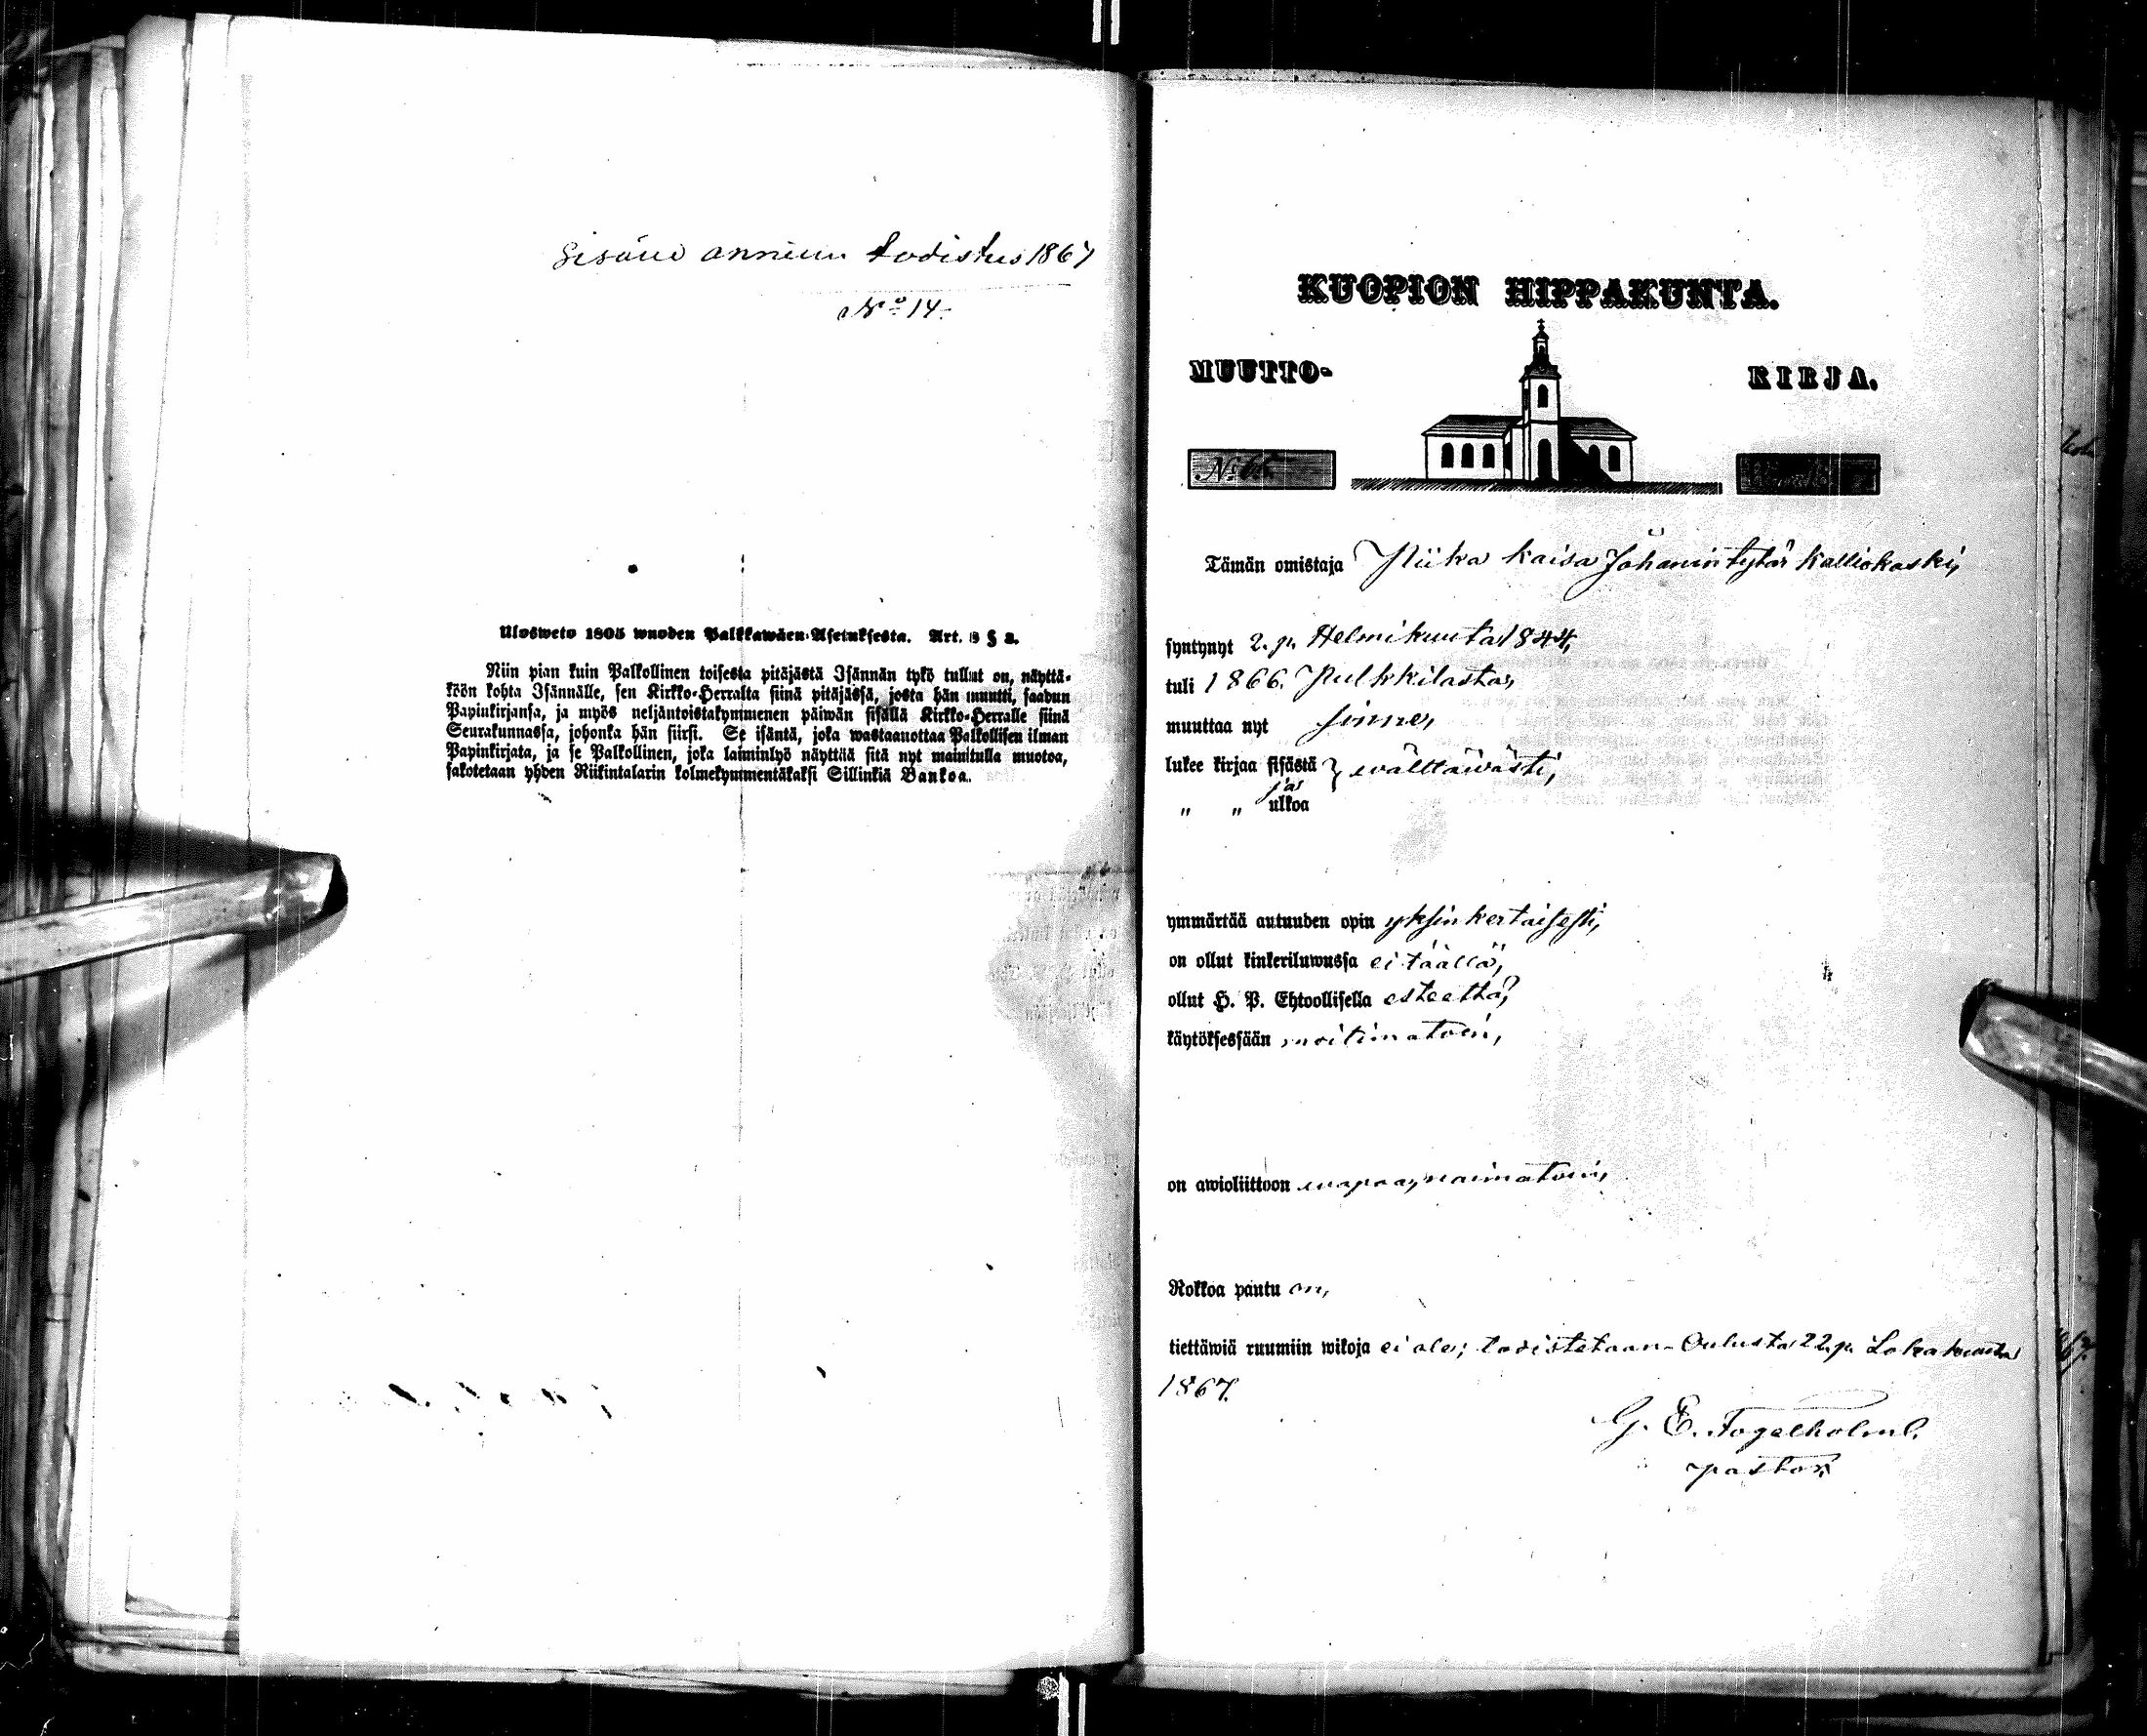 Sisään annettu todistus 1867
No 14.
Ulosweto 1805 wuoden Palkkawäen-Asetuksesta. Art. 3 § 3.
Niin pian kuin Palkollinen toisesta pitäjästä Isännän tykö tullut on, näyttä-
köön kohta Isännälle, sen Kirkko-Herralta siinä pitäjässä, josta hän muutti, saadun
Papinkirjansa, ja myös neljäntoistakymmenen päiwän sisällä Kirkko-Herralle siinä
Seurakunnassa, johonka hän siirsi. Se isäntä, joka wastaanottaa Palkollisen ilman
Papinkirjata, ja se Palkollinen, joka laiminlyö näyttää sitä nyt mainitulla muotoa,
sakotetaan yhden Riikintalarin kolmekymmentäkaksi Sillinkiä Bankoa.
KUOPION HIPPAKUNTA.
MUUTTO- KIRJA.
No 65
Tämän omistaja Piika Kaisa Johanintytär Kalliokoski,
syntynyt 2. p. Helmikuuta 1844,
tuli 1866. Pulkkilasta,
muuttaa nyt sinne,
lukee kirjaa sisästä } wälttäwästi,
ja
" " ulkoa
ymmärtää autuuden opin yksinkertaisesti,
on ollut kinkeriluwussa ei täällä,
ollut H. P. Ehtoollisella esteettä,
käytöksessään moitimatoin,
on awioliittoon wapaa, naimatoin,
Rokkoa pantu on,
tiettäwiä ruumiin wikoja ei ole; todistetaan. Oulusta 22 p. Lokakuuta
1867.
G. E. Fogelholm.
pastor.